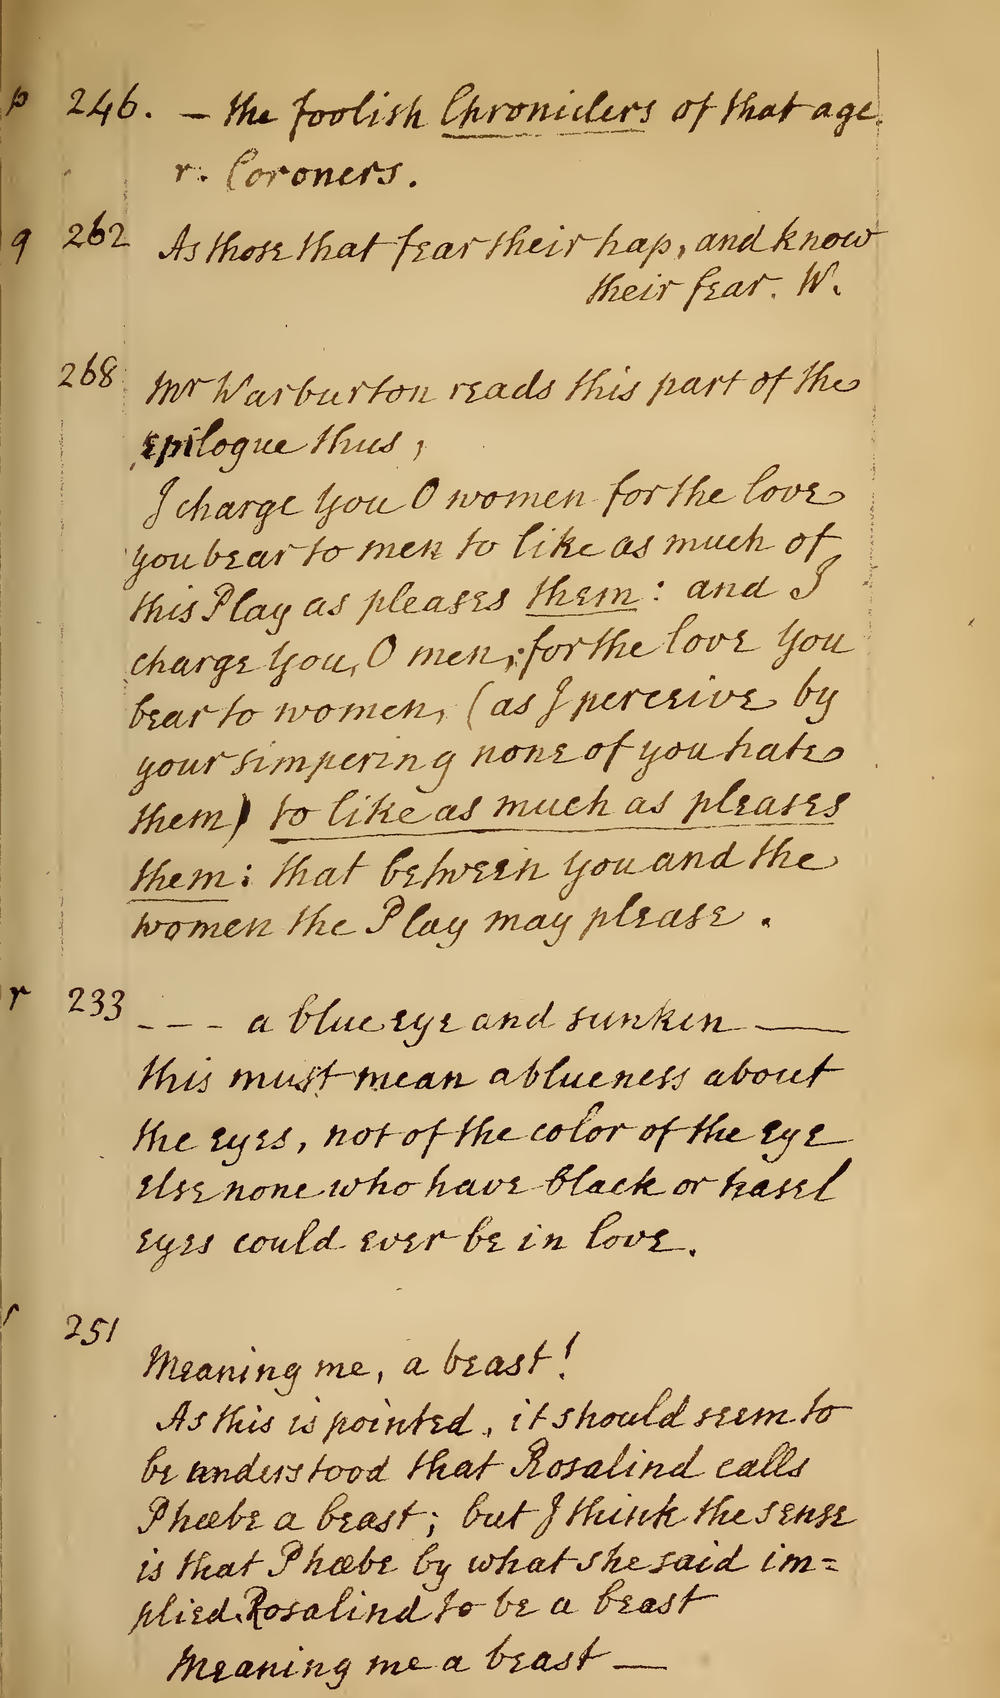 p 246. — the foolish Chroniclers of that age.
r. Coroners.
q 262 As those that fear their hap, and know
their fear. W.
268 Mr Warburton reads this part of the
Epilogue thus,
I charge you O women for the love
you bear to men to like as much of
this Play as pleases them: and I
charge you, O men, for the love you
bear to women, (as I perceive by
your simpering none of you hate
them) to like as much as pleases
them: that between you and the
women the Play may please.
r 233 - - - a blue eye and sunken —
this must mean a blueness about
the eyes, not of the color of the eye
else none who have black or hasel
eyes could ever be in love.
s 251
Meaning me, a beast!
As this is pointed, it should seem to
be understood that Rosalind calls
Phœbe a beast; but I think the sense
is that Phœbe by what she said im=
plied Rosalind to be a beast
Meaning me a beast —